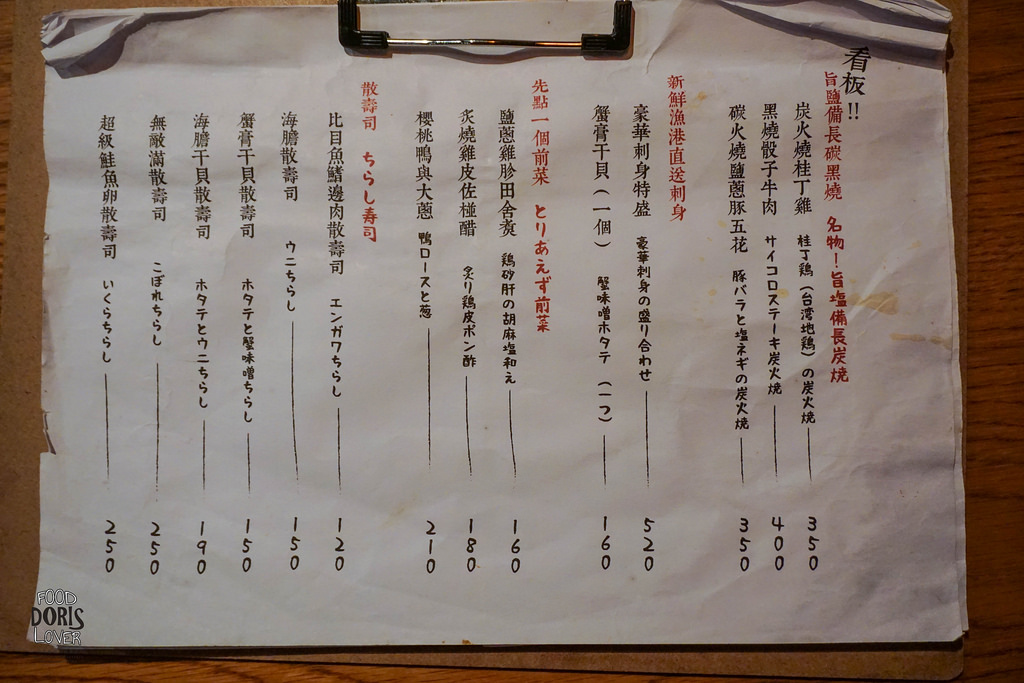 看板!!
旨鹽備長碳黑燒 名物!旨塩備長炭焼
炭火燒桂丁雞 桂丁鶏(台湾地鶏)の炭火焼 350
黑燒骰子牛肉 サイコロステーキ炭火焼 400
碳火燒鹽蔥豚五花 豚バラと塩ネギの炭火焼 350
新鮮漁港直送刺身
豪華刺身特盛 豪華刺身の盛り合わせ 520
蟹膏干貝(一個) 蟹味噌ホタテ(一つ) 160
先點一個前菜 とりあえず前菜
鹽蔥雞胗田舍煮 鶏砂肝の胡麻塩和え 160
炙燒雞皮佐椪醋 炙り鶏皮ポン酢 180
櫻桃鴨與大蔥 鴨ロースと葱 210
散壽司 ちらし寿司
比目魚鰭邊肉散壽司 エンガワちらし 120
海膽散壽司 ウニちらし 150
蟹膏干貝散壽司 ホタテと蟹味噌ちらし 150
海膽干貝散壽司 ホタテとウニちらし 190
無敵滿散壽司 こぼれちらし 250
超級鮭魚卵散壽司 いくらちらし 250
FOOD
DORIS
LOVER